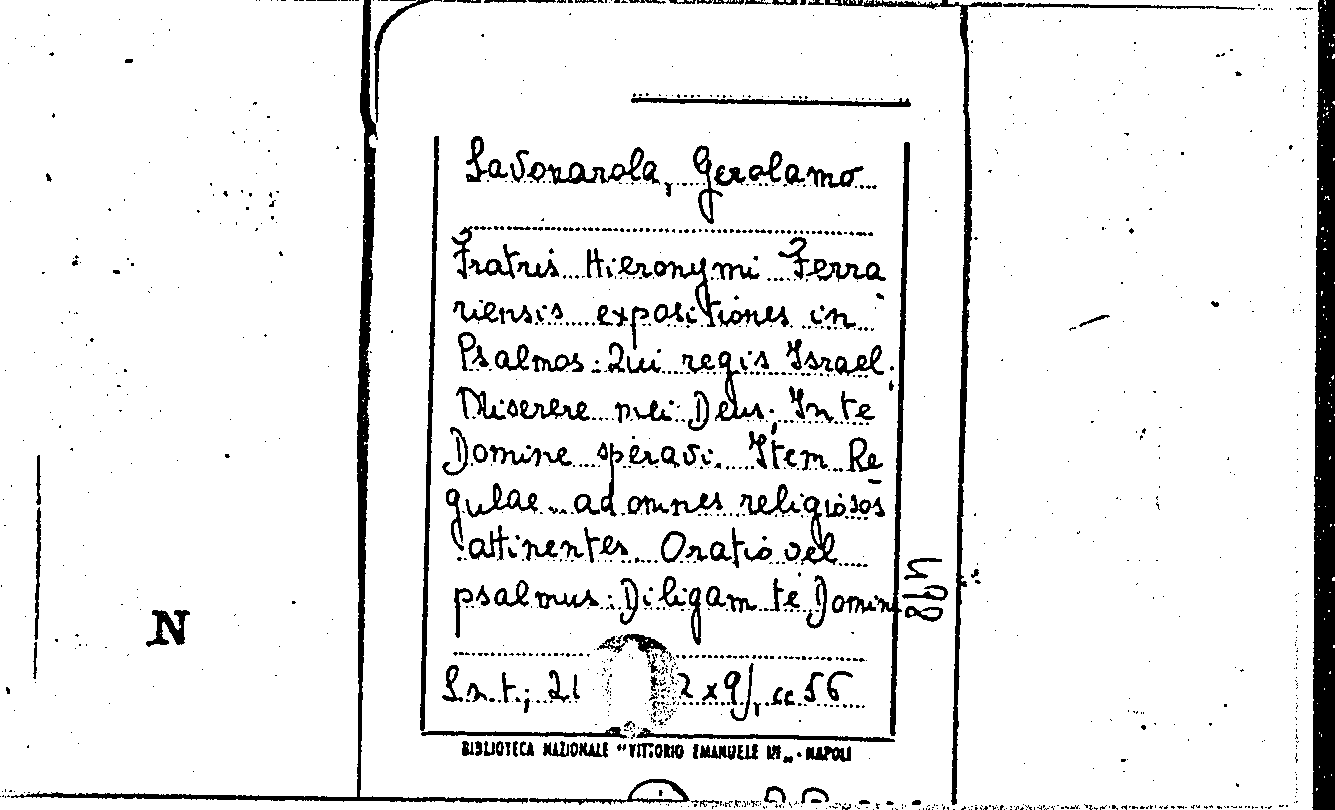 Savonarola, Gerolamo
Fratris Hieronymi Ferra
riensis expositiones in
Psalmos: Qui regis Israel;
Miserere mei Deus; In te
Domine speravi. Item Re
gulae ad omnes religiosos
attinentes. Oratio vel
psalmus: Diligam te Domin
S.n.t.; 21 2x9), cc 56
BIBLIOTECA NAZIONALE "VITTORIO EMANUELE III" - NAPOLI
N